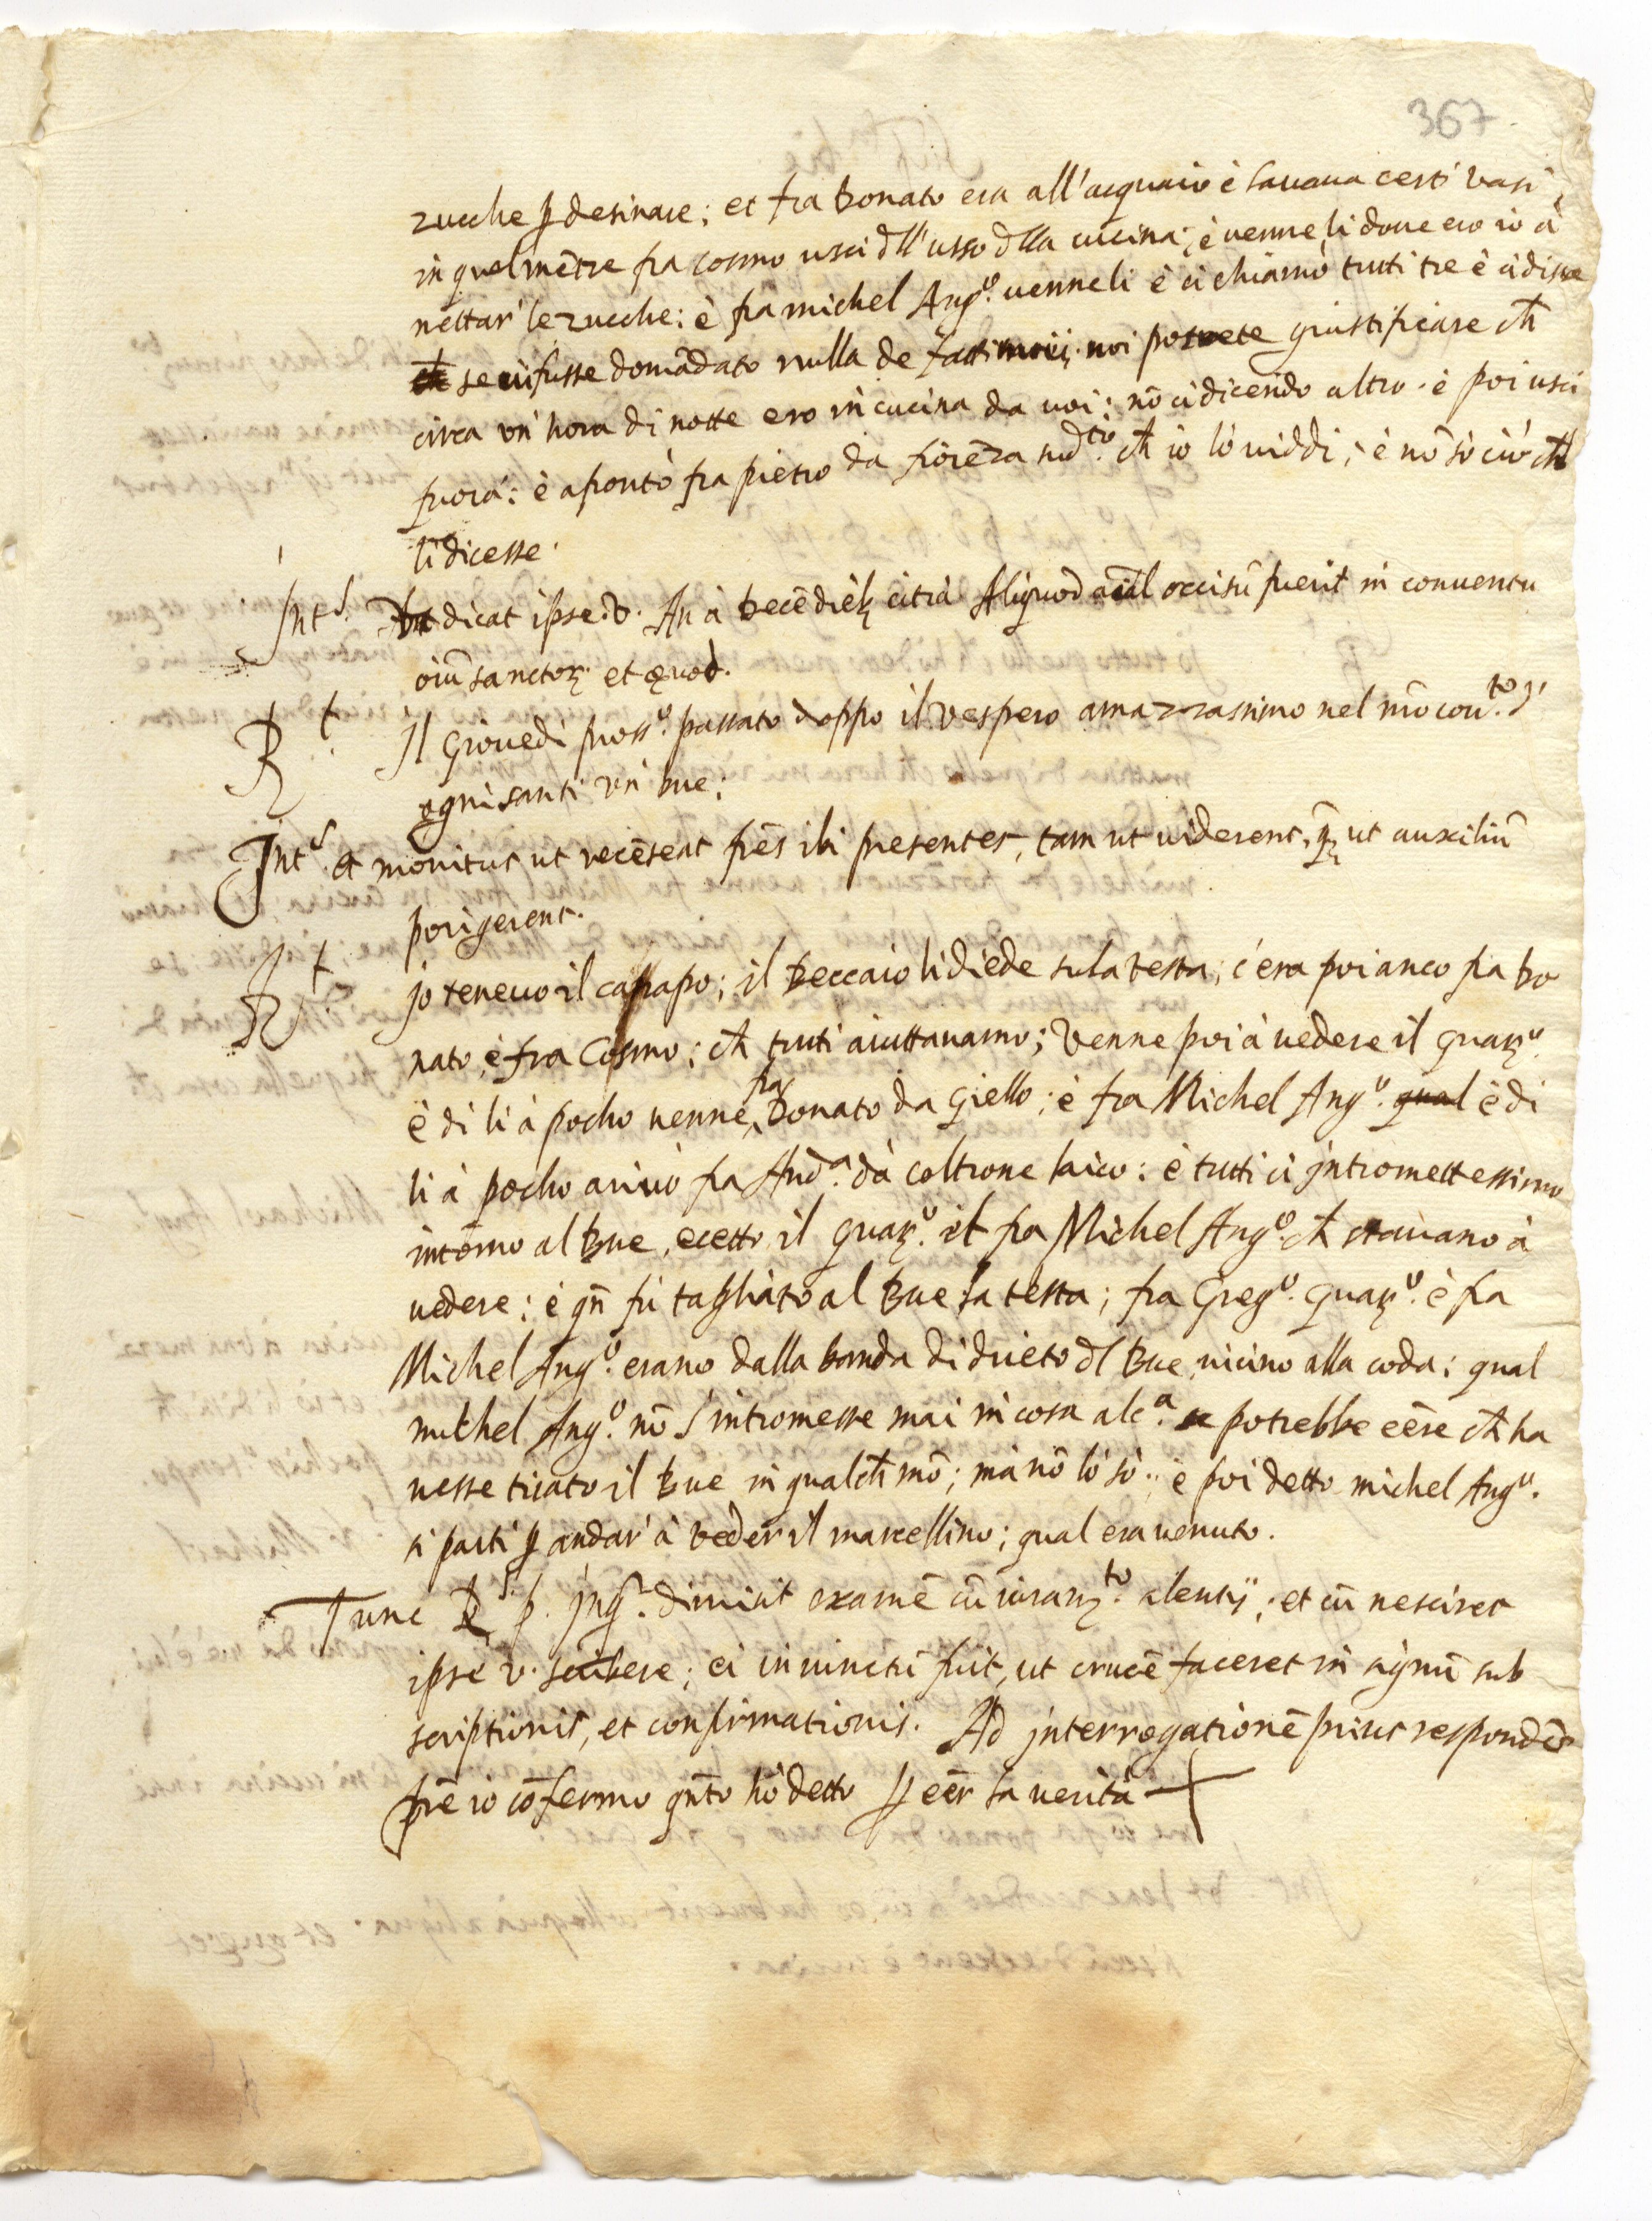 367
zucche ꝑ desinare; et fra Bonato era all'acquaio è lauaua certi vasi,
in quel mētre fra cosmo uscì dll'usso dlla cucina; è uenne li doue ero io à
nettar' le zucche: è fra michel Angº. uenne li è ci chiamò tutti tre è ci disse
se ui fusse domādato nulla de fatti miei. uoi potrete giustificare ch̄
circa un' hora di notte ero in cucina da uoi; nō ci dicendo altro. è poi uscì
fuora: è afrontò fra pietro da fiorēza sudto. ch̄ io lo uiddi; è nō sò ciò ch̄
li dicesse.
Jnts. dicat ipse. v. An à decē dieb; citrà Aliquod aīal occisū fuerit in conuentu
oiū sanctoꝝ et quod.
Rt. Jl Giouedì prossº. passato doppo il vespero amazzassimo nel nrō conto. d'
ognisanti un bue;
Jnts. et monitus ut recēseat frēs ibi presentes, tam ut uiderent, qꝫ ut auxiliū
porigerent.
Rt. jo teneuo il capapo; il beccaio li diede sula testa; c'era poi anco fra bo
nato, è fra Cosmo; ch̄ tutti aiuttauamo; venne poi à uedere il guarº.
è di li à pocho uenne fra Donato da Giello; è fra Michel Angº. qual è di
li à pocho ariuò fra Andª. dà coltrone laico: è tutti ci jntromettessimo
intorno al bue, ecetto il guarº. et fra Michel Angº. ch̄ stauano à
uedere: è qn̄ fù tagliato al bue la testa; fra Gregº. Guarº. è fra
Michel Angº. erano dalla banda di drieto dl bue, uicino alla coda: qual
michel Angº. nō s'intromesse mai in cosa alcª. potrebbe eēre ch̄ ha
uesse tirato il bue in qualch̄ mō; mà nō lo sò. è poi detto michel Angº.
si partì ꝑ andar' à veder il marcellino; qual era uenuto.
Tunc Rs. p. jnqr. dimisit examē cū iuramto. silentij; et cū nesciret
ipse v. scribere; ei iniunctū fuit, ut crucē faceret in signū sub
scriptionis, et confirmationis. Ad jnterrogationē prius respondēs
frē io cōfermo qn̄to hò detto ꝑ eēr la uerità +